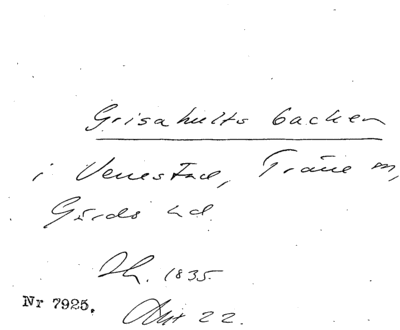 Grisahults backen
i Venestad, Träne m,
Gärds hd.
Sk. 1835.
Nr 7925. Akt 22.